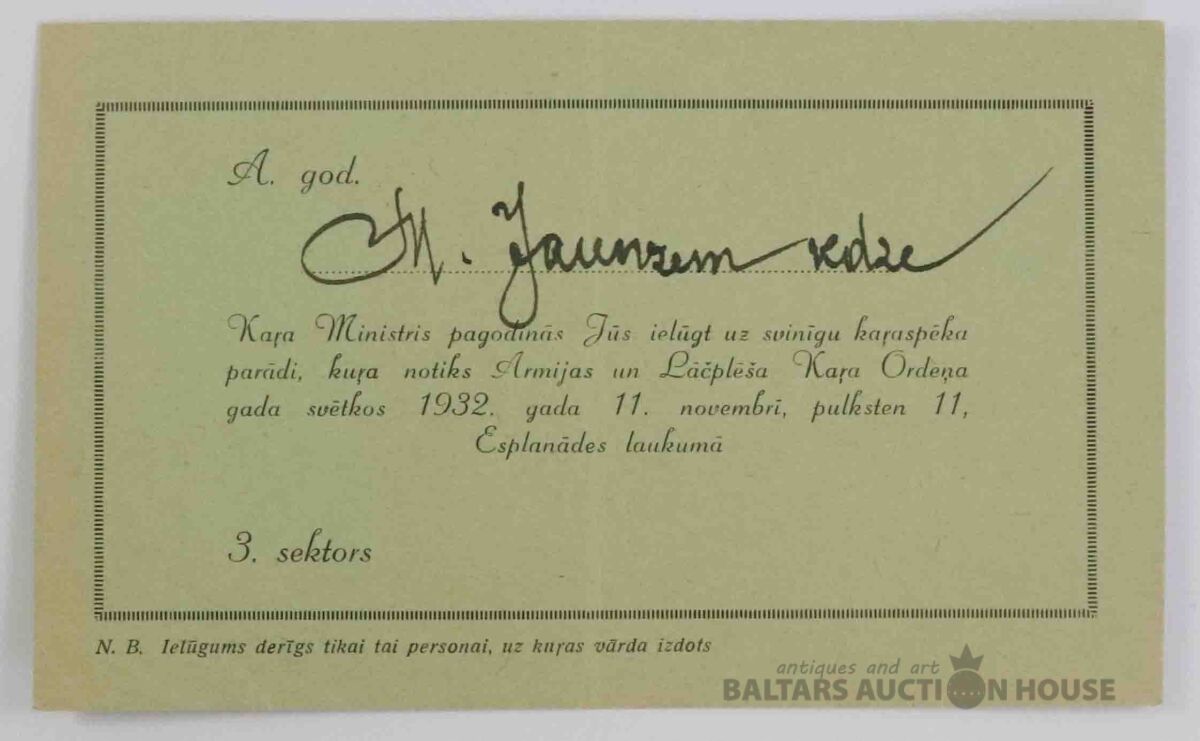 A. god.
M. Jaunzem kdze
Kaŗa Ministris pagodinās Jūs ielūgt uz svinīgu kaŗaspēka
parādi, kuŗa notiks Armijas un Lāčplēša Kaŗa Ordeņa
gada svētkos 1932. gada 11. novembrī, pulksten 11,
Esplanādes laukumā
3. sektors
N. B. Ielūgums derīgs tikai tai personai, uz kuŗas vārda izdots
antiques and art
BALTARS AUCTION HOUSE